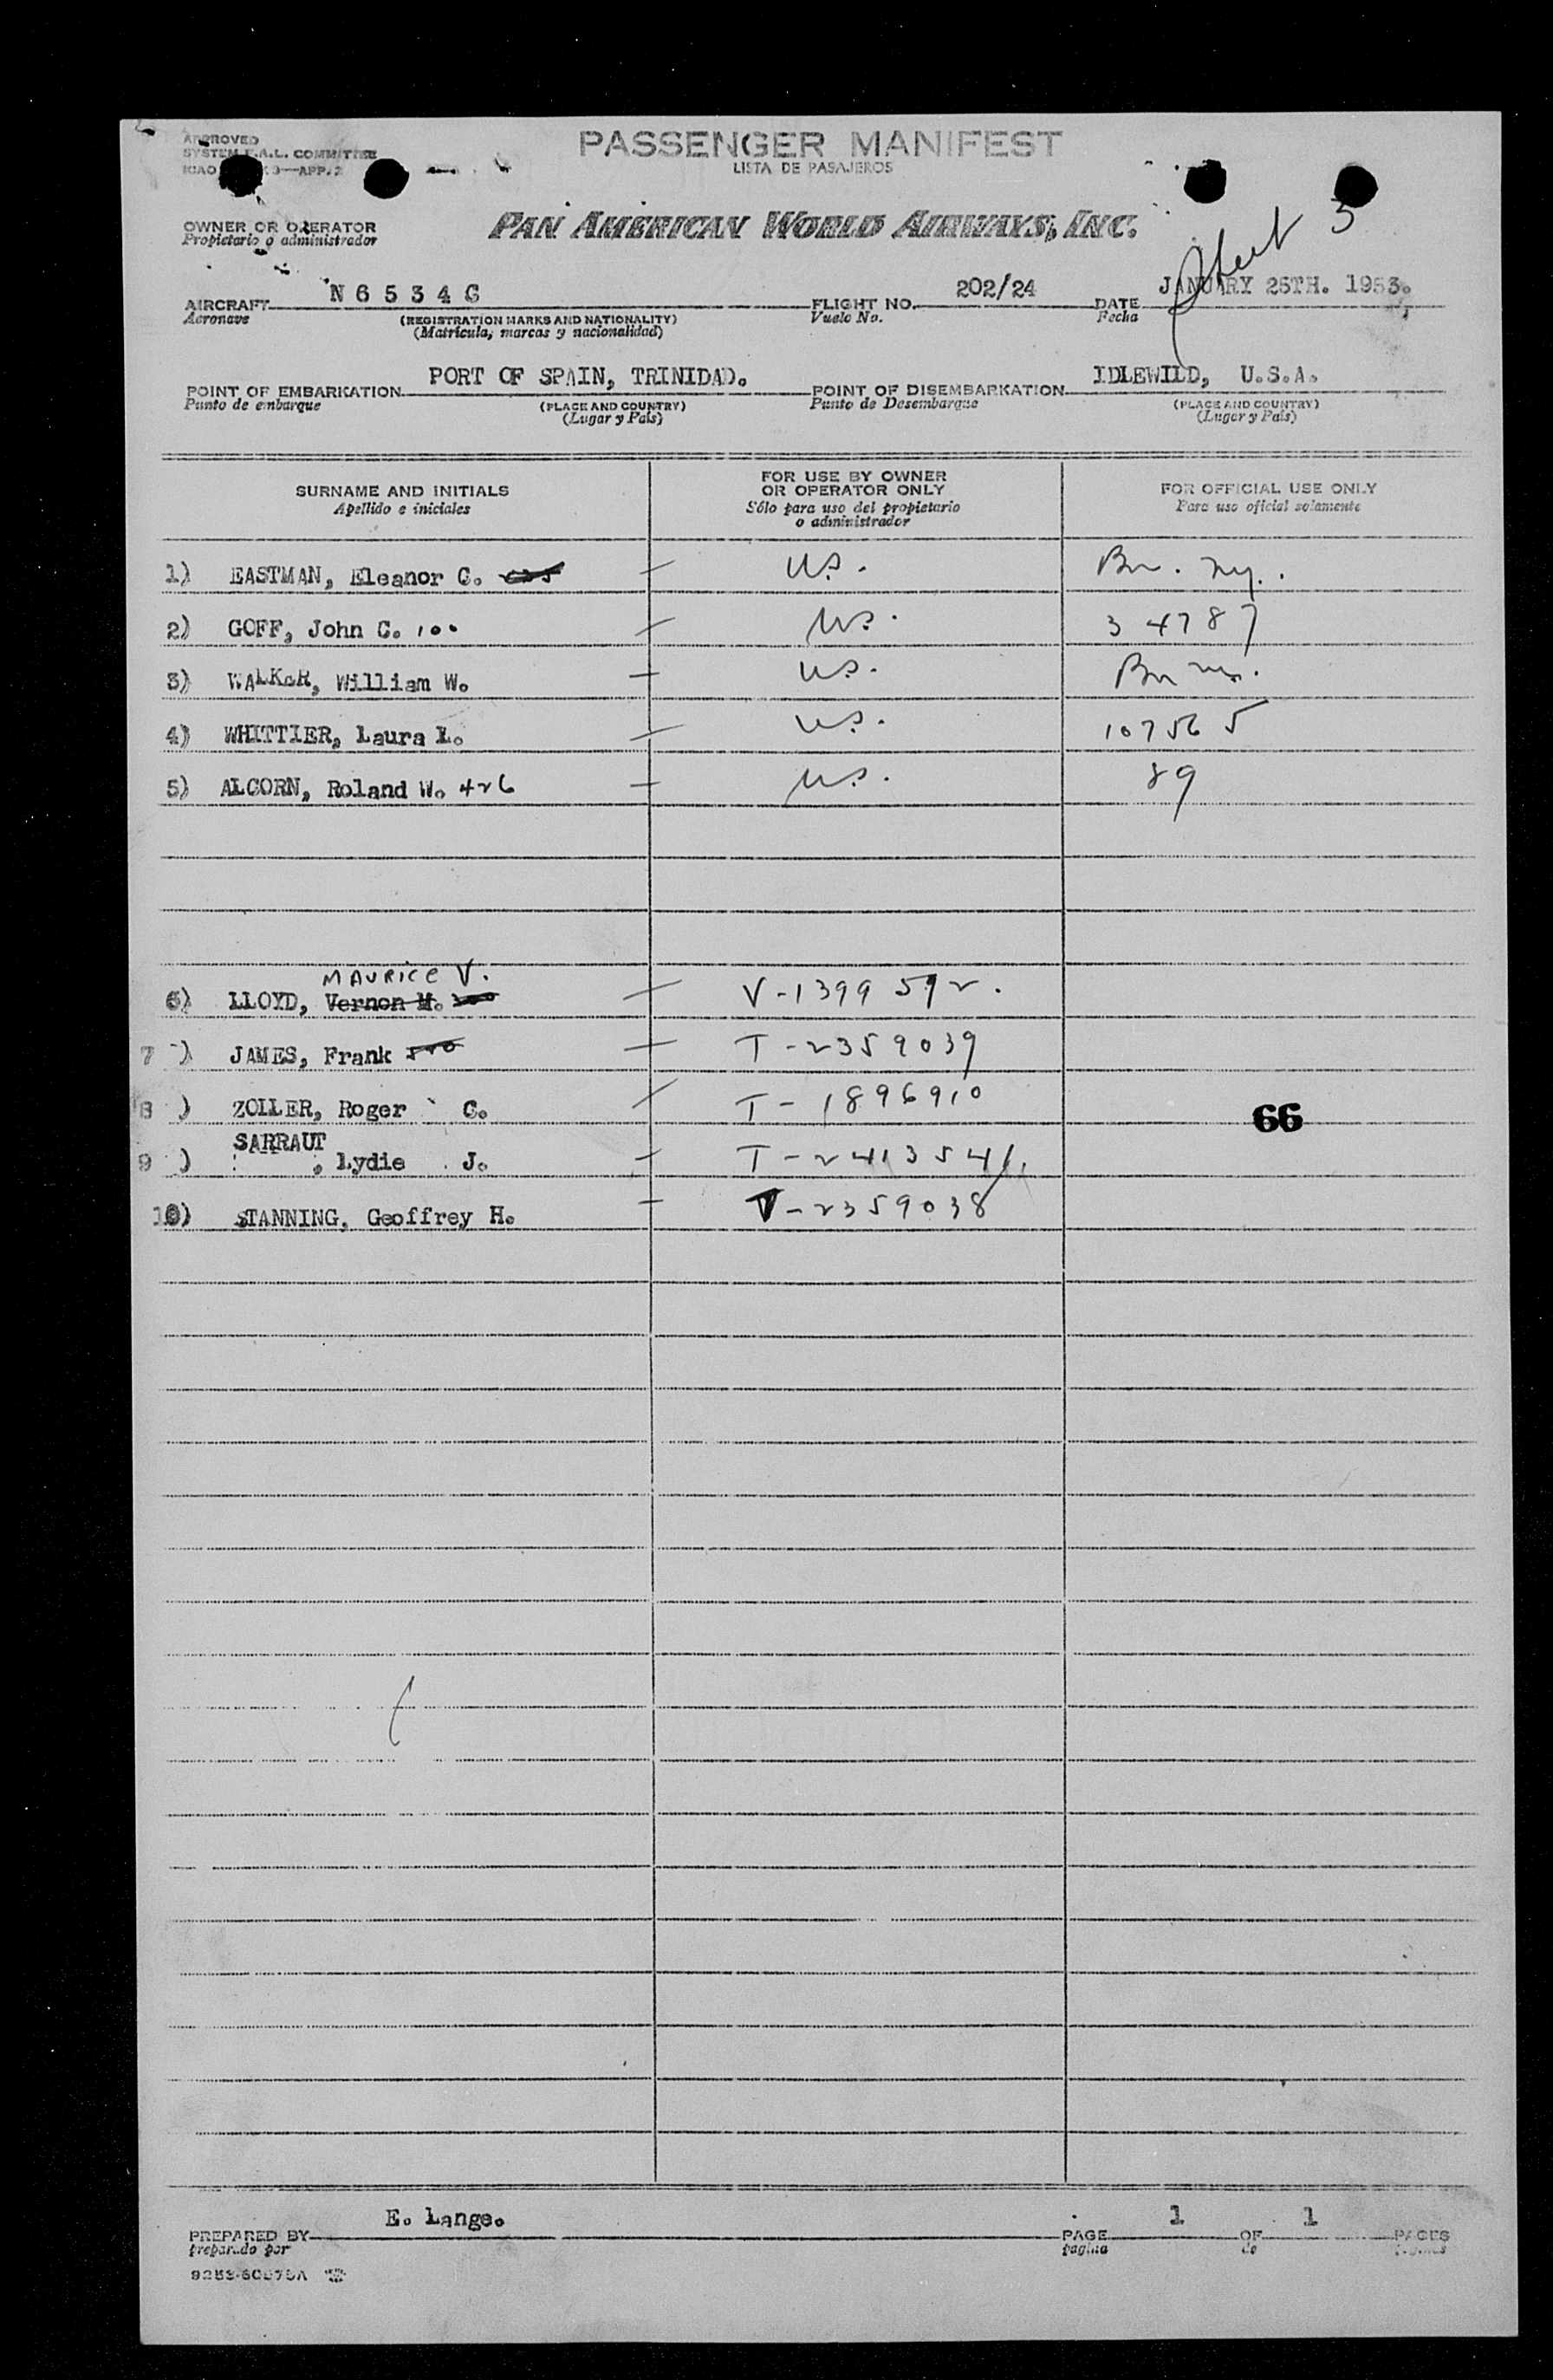 APPROVED
SYSTEM F.A.L. COMMITTEE
ICAO 9—APP. 2
PASSENGER MANIFEST
LISTA DE PASAJEROS
Sheet 3
OWNER OR OPERATOR
Propietario o administrador
PAN AMERICAN WORLD AIRWAYS, INC.
AIRCRAFT N 6 5 3 4 C
Aeronave
(REGISTRATION MARKS AND NATIONALITY)
(Matrícula, marcas y nacionalidad)
FLIGHT NO. 202/24
Vuelo No.
DATE JANUARY 25TH. 1953.
Fecha
POINT OF EMBARKATION PORT OF SPAIN, TRINIDAD.
Punto de embarque
(PLACE AND COUNTRY)
(Lugar y País)
POINT OF DISEMBARKATION IDLEWILD, U.S.A.
Punto de Desembarque
(PLACE AND COUNTRY)
(Lugar y País)
SURNAME AND INITIALS
Apellido e iniciales
FOR USE BY OWNER
OR OPERATOR ONLY
Sólo para uso del propietario
o administrador
FOR OFFICIAL USE ONLY
Para uso oficial solamente
1) EASTMAN, Eleanor C. — U.S. Bn. ny.
2) GOFF, John C. 100 — U.S. 34787
3) WALKER, William W. — U.S. Bn ny.
4) WHITTIER, Laura L. — U.S. 107565
5) ALCORN, Roland W. 426 — U.S. 89
MAURICE V.
6) LLOYD, Vernon M. — V-1399592.
7 ) JAMES, Frank — T-2359039
8 ) ZOLLER, Roger C. — T-1896910
66
SARRAUT
9 ) , Lydie J. — T-2413541
10) STANNING, Geoffrey H. — V-2359038
E. Lange.
PREPARED BY
preparado por
PAGE 1 OF 1 PAGES
pagina de